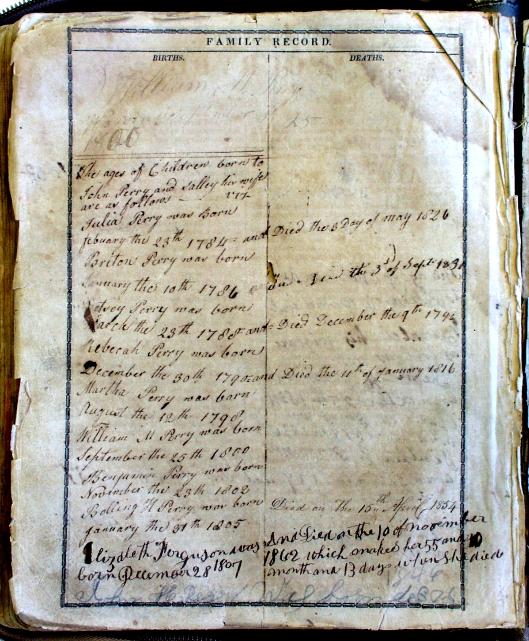 FAMILY RECORD.
BIRTHS. DEATHS.
William
25
1800
The ages of Children born to
John Perry and Salley his wife
are as follows
Julia Perry was Born
febuary the 23th 1784 and Died the 3 Day of may 1826
Briton Perry was born
January the 10th 1786 Died the 3d of Sept
Perry was born
March the 23th 1788 and Died December the 9th
Rebecah Perry was born
December the 30th and Died the 11th of January 1816
Martha Perry was born
August the 12th 1798
William M Perry was born
September the 25th 1800
Benjamin Perry was born
November the 23th 1802
Bolling H Perry was born Died on the 15th April 1854
January the 31th 1805
Elizabeth Ferguson was And Died on the 10 of november
born December 28 1807 1862 which makes her 55 and 10
month and 13 days when she died